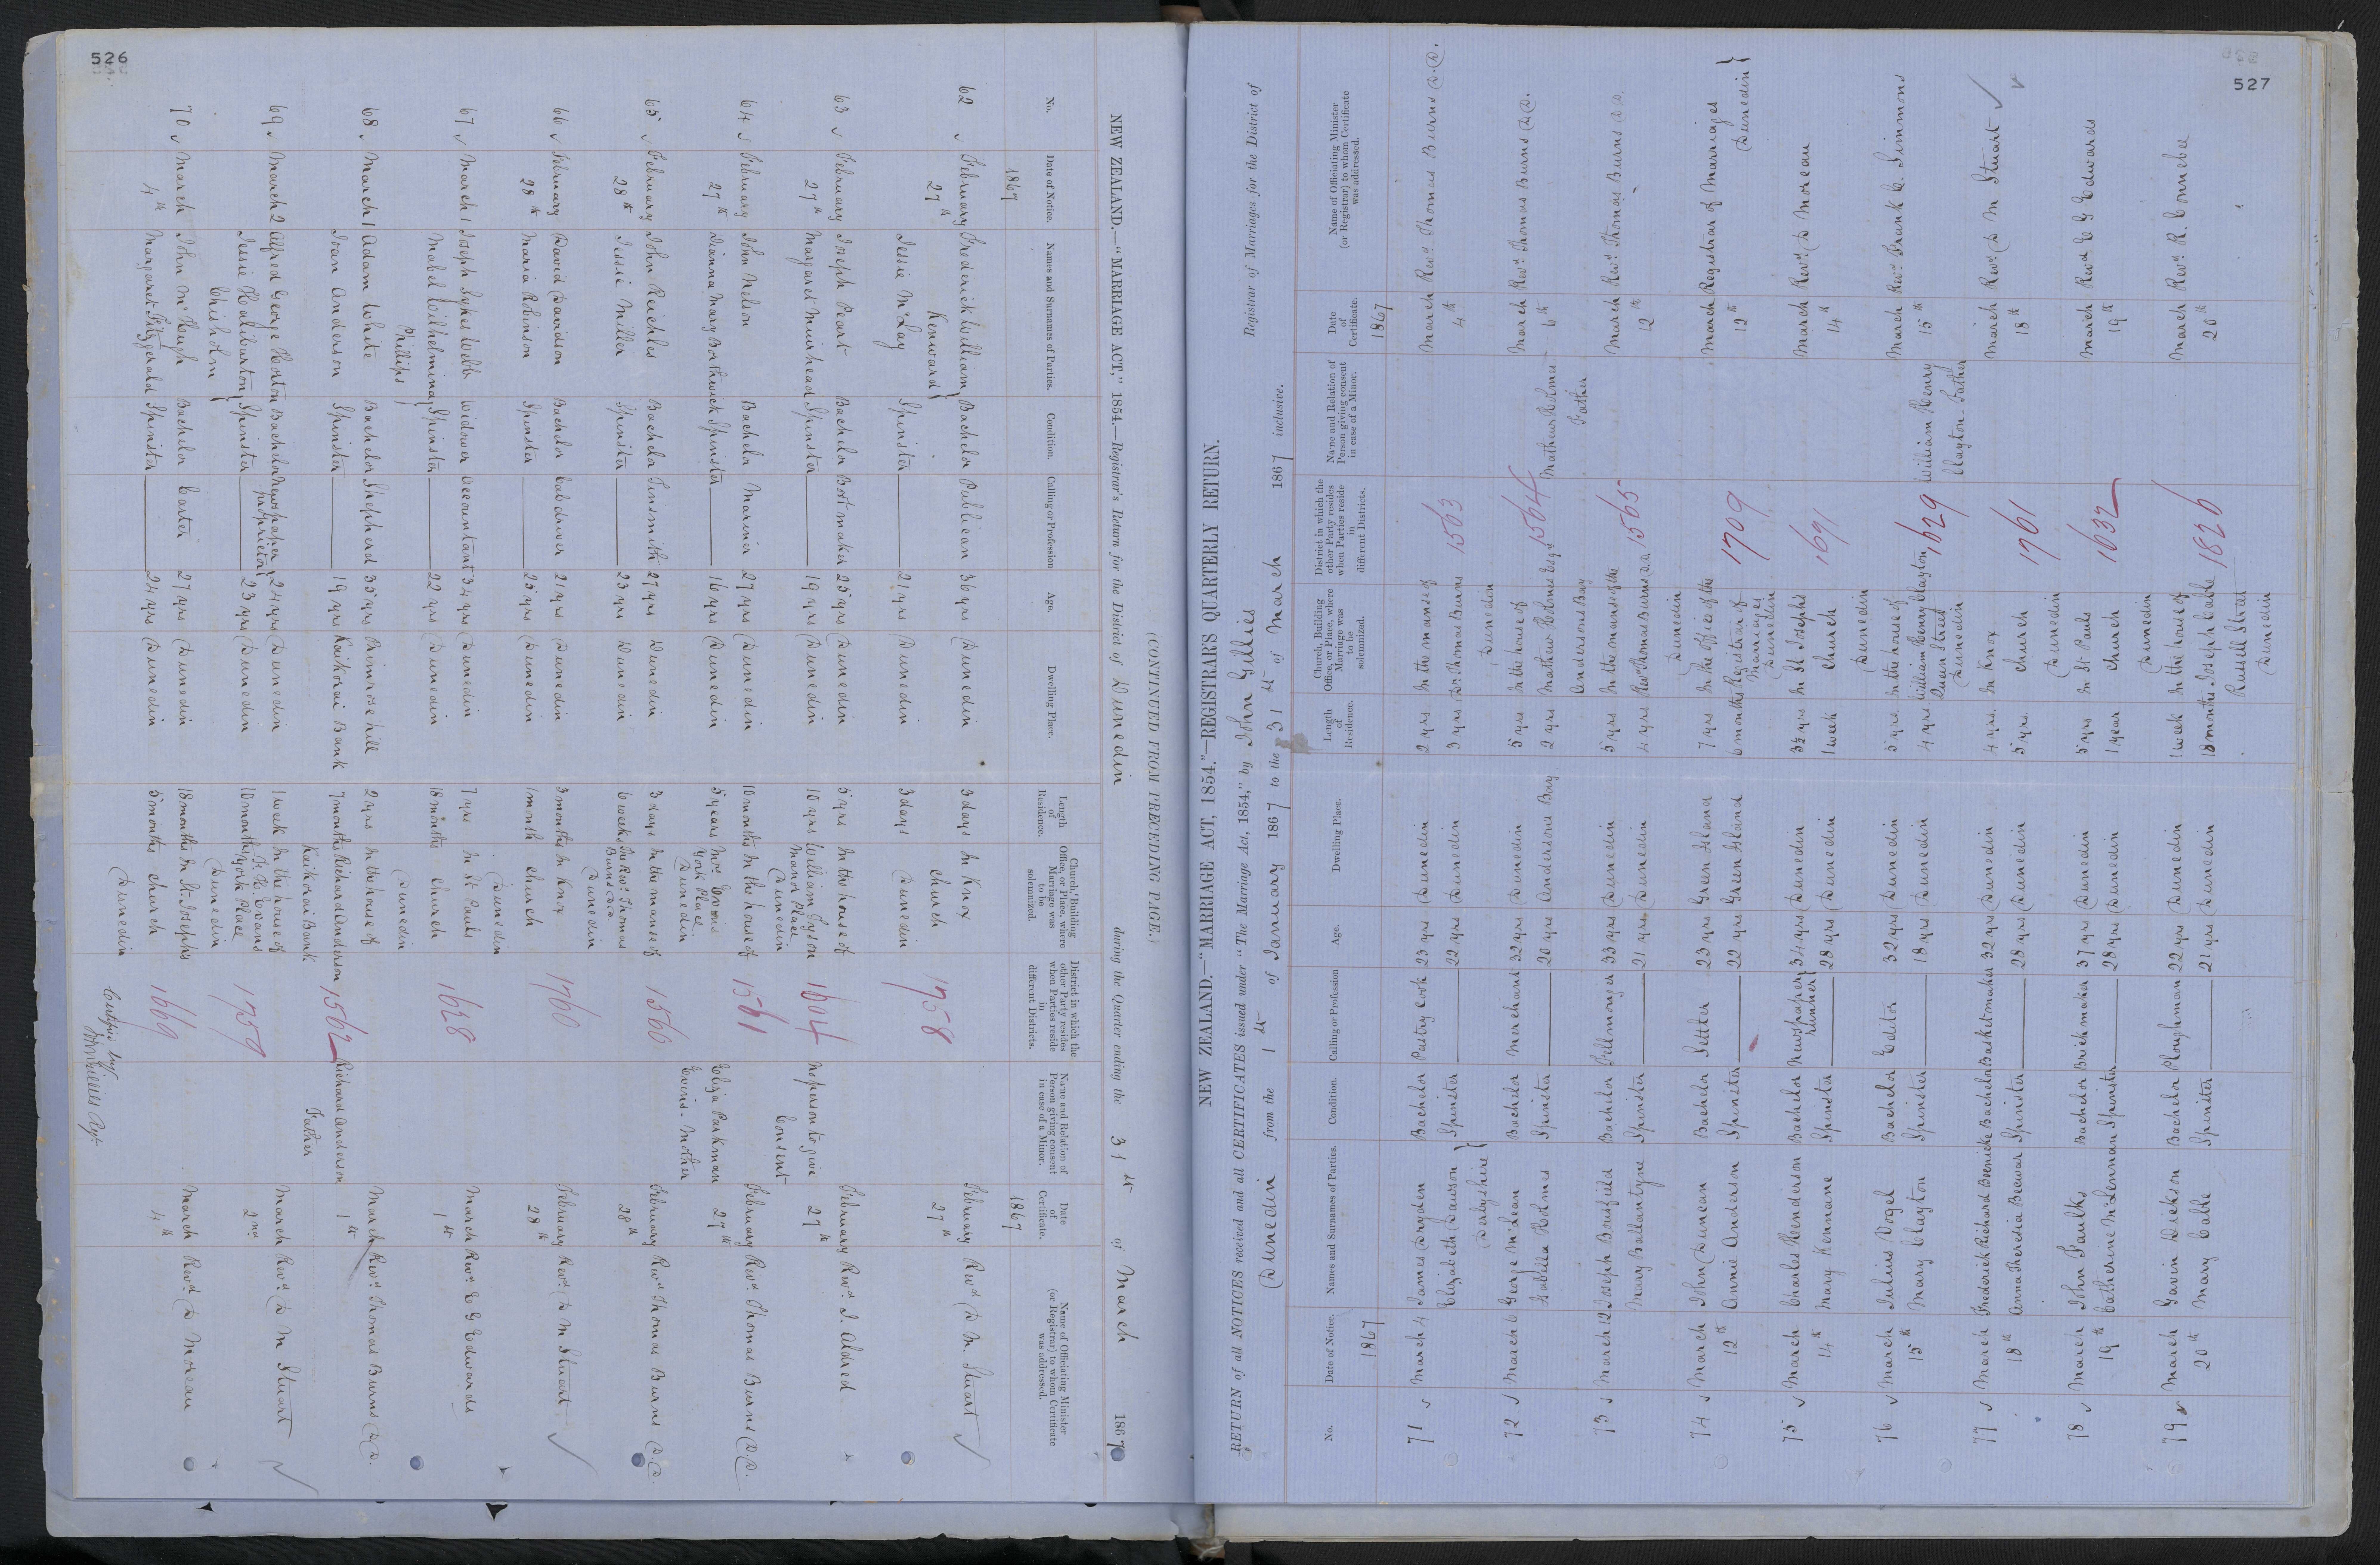 526
NEW ZEALAND.—"MARRIAGE ACT," 1854.—Registrar's Return for the District of Dunedin during the Quarter ending the 31st of March 1867
(CONTINUED FROM PRECEDING PAGE.)
No. Date of Notice. Names and Surnames of Parties. Condition. Calling or Profession Age. Dwelling Place. Length of Residence. Church, Building Office, or Place, where Marriage was to be solemnized. District in which the other Party resides when Parties reside in different Districts. Name and Relation of Person giving consent in case of a Minor. Date of Certificate. Name of Officiating Minister (or Registrar) to whom Certificate was addressed.
1867 1867
62 February 27th Frederick William Kenward Bachelor Publican 36 yrs Dunedin 3 days In Knox Church Dunedin 1758 February 27th Revd D M. Stuart
Jessie McLay Spinster 21 yrs Dunedin 3 days
63 February 27th Joseph Peart Bachelor Bootmaker 25 yrs Dunedin 5 yrs In the house of William Tyson Manor Place Dunedin 1694 No person to give Consent February 27th Revd I. Aldred
Margaret Muirhead Spinster 19 yrs Dunedin 10 yrs
64 February 27th John Nelson Bachelor Mariner 27 yrs Dunedin 10 months In the house of Mrs Evris York Place Dunedin 1561 Eliza Parkman Evris. Mother February 27th Revd Thomas Burns D.D.
Dianna Mary Borthwick Spinster 16 yrs Dunedin 5 years
65 February 28th John Reichles Bachelor Tinsmith 27 yrs Dunedin 3 days In the manse of The Revd Thomas Burns D.D. Dunedin 1560 February 28th Revd Thomas Burns D.D.
Jessie Miller Spinster 23 yrs Dunedin 6 weeks
66 February 28th David Davidson Bachelor Cabdriver 21 yrs Dunedin 3 months In Knox Church Dunedin 1760 February 28th Revd D M Stuart
Maria Robinson Spinster 25 yrs Dunedin 1 month
67 March 1 Joseph Sykes Webb Widower Accountant 34 yrs Dunedin 7 yrs In St Pauls Church Dunedin 1628 March 1st Revd E G Edwards
Mabel Wilhelmina Phillips Spinster 22 yrs Dunedin 18 months
68 March 1 Adam White Bachelor Shepherd 35 yrs Primrose hill 2 yrs In the house of Richard Anderson Kaikorai Bank 1562 Richard Anderson Father March 1st Revd Thomas Burns D.D.
Joan Anderson Spinster 19 yrs Kaikorai Bank 7 months
69 March 2 Alfred George Horton Bachelor Newspaper proprietor 24 yrs Dunedin 1 week In the house of York Place Dunedin 1759 March 2nd Revd D M Stuart
Jessie Haliburton Chisholm Spinster 23 yrs Dunedin 10 months
70 March 4th John McHugh Bachelor Carter 27 yrs Dunedin 18 months In St Josephs Church Dunedin 1669 March 4th Revd D Moreau
Margaret Fitzgerald Spinster 24 yrs Dunedin 5 months
Certified by
John Gillies Regr
527
NEW ZEALAND.—"MARRIAGE ACT, 1854."—REGISTRAR'S QUARTERLY RETURN.
RETURN of all NOTICES received and all CERTIFICATES issued under "The Marriage Act, 1854," by John Gillies Registrar of Marriages for the District of
Dunedin from the 1st of January 1867 to the 31st of March 1867 inclusive.
No. Date of Notice. Names and Surnames of Parties. Condition. Calling or Profession Age. Dwelling Place. Length of Residence. Church Building Office, or Place, where Marriage was to be solemnized. District in which the other Party resides when Parties reside in different Districts. Name and Relation of Person giving consent in case of a Minor. Date of Certificate. Name of Officiating Minister (or Registrar) to whom Certificate was addressed.
1867 1867
71 March 4 James Dryden Bachelor Pastry Cook 23 yrs Dunedin 2 yrs In the manse of Dr Thomas Burns Dunedin 1563 March 4th Revd Thomas Burns D.D.
Elizabeth Dawson Derbyshire Spinster 22 yrs Dunedin 3 yrs
72 March 6 George McLean Bachelor Merchant 32 yrs Dunedin 5 yrs In the house of Mathew Holmes Esqr Andersons Bay 1564 Mathew Holmes Father March 6th Revd Thomas Burns D.D.
Isabella Holmes Spinster 20 yrs Andersons Bay 2 yrs
73 March 12 Joseph Bousfield Bachelor Fellmonger 33 yrs Dunedin 5 yrs In the manse of the Revd Thomas Burns D.D. Dunedin 1565 March 12th Revd Thomas Burns D.D.
Mary Ballantyne Spinster 21 yrs Dunedin 4 yrs
74 March 12th John Duncan Bachelor Settler 23 yrs Green Island 7 yrs In the Office of the Registrar of Marriages Dunedin 1709 March 12th Registrar of Marriages Dunedin
Annie Anderson Spinster 22 yrs Green Island 6 months
75 March 14th Charles Henderson Bachelor Newspaper runner 34 yrs Dunedin 3½ yrs In St Josephs Church Dunedin 1691 March 14th Revd D Moreau
Mary Kennane Spinster 28 yrs Dunedin 1 week
76 March 15th Julius Vogel Bachelor Editor 32 yrs Dunedin 5 yrs. In the house of William Henry Clayton Queen Street Dunedin 1629 William Henry Clayton. Father March 15th Revd Frank C. Simmons
Mary Clayton Spinster 18 yrs Dunedin 4 yrs.
77 March 18th Frederick Richard Bachelor Basketmaker 32 yrs Dunedin 4 yrs. In Knox Church Dunedin 1761 March 18th Revd D M Stuart
Anna Theresia Spinster 28 yrs Dunedin 5 yrs.
78 March 19th John Faulks Bachelor Brickmaker 37 yrs Dunedin 5 yrs In St Pauls Church Dunedin 1632 March 19th Revd E G Edwards
Catherine McLennan Spinster 28 yrs Dunedin 1 year
79 March 20th Gavin Dickson Bachelor Ploughman 22 yrs Dunedin 1 week In the house of Joseph Cable Russell Street Dunedin 1826 March 20th Revd R. Connebee
Mary Cable Spinster 21 yrs Dunedin 18 months